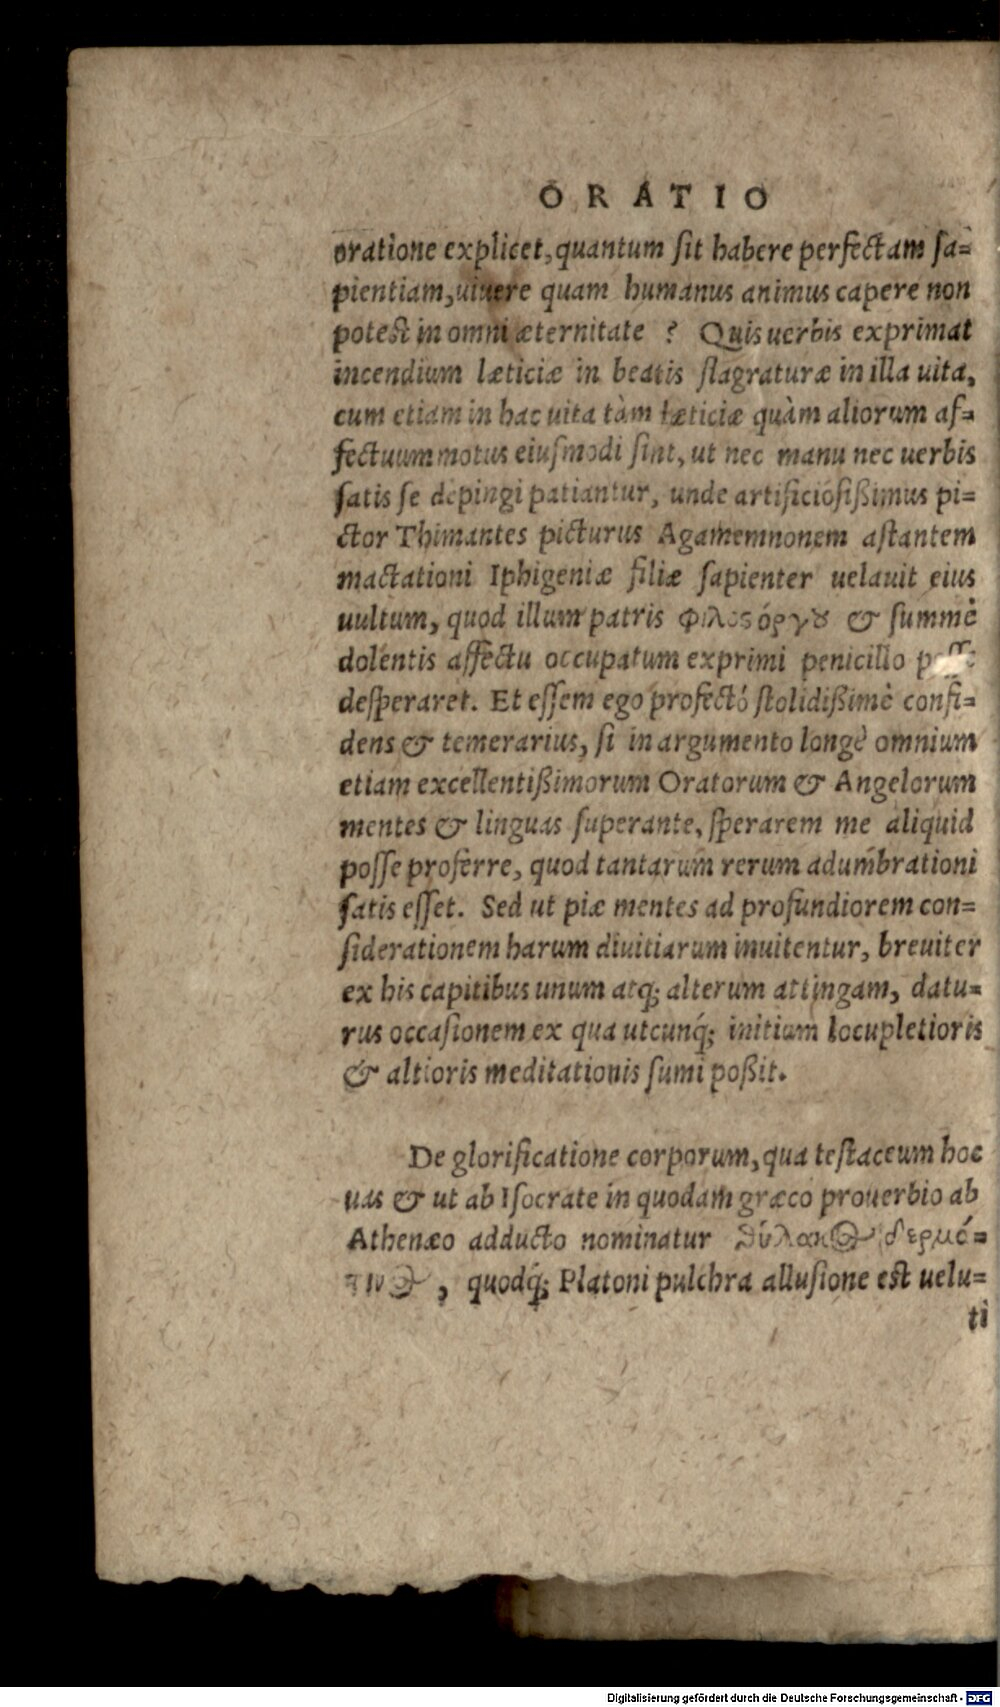 ORATIO
oratione explicet, quantum ſit habere perfectam ſa=
pientiam, uiuere quam humanus animus capere non
poteſt in omni æternitate ? Quis uerbis exprimat
incendium læticiæ in beatis flagraturæ in illa uita,
cum etiam in hac uita tàm læticiæ quàm aliorum af=
fectuum motus eiuſmodi ſint, ut nec manu nec uerbis
ſatis ſe depingi patiantur, unde artificioſißimus pi=
ctor Thimantes picturus Agamemnonem aſtantem
mactationi Iphigeniæ filiæ ſapienter uelauit eius
uultum, quod illum patris φιλοςόργȣ & ſummè
dolentis affectu occupatum exprimi penicillo poſſe
deſperaret. Et eſſem ego profectó ſtolidißimè confi=
dens & temerarius, ſi in argumento longè omnium
etiam excellentißimorum Oratorum & Angelorum
mentes & linguas ſuperante, ſperarem me aliquid
poſſe proferre, quod tantarum rerum adumbrationi
ſatis eſſet. Sed ut piæ mentes ad profundiorem con=
ſiderationem harum diuitiarum inuitentur, breuiter
ex his capitibus unum atq; alterum attingam, datu=
rus occaſionem ex qua utcunq́; initium locupletioris
& altioris meditationis ſumi poßit.
De glorificatione corporum, qua teſtaceum hoc
uas & ut ab Iſocrate in quodam græco prouerbio ab
Athenæo adducto nominatur θύλακος δερμά=
τινος, quodq́; Platoni pulchra alluſione eſt uelu=
ti
Digitalisierung gefördert durch die Deutsche Forschungsgemeinschaft - DFG